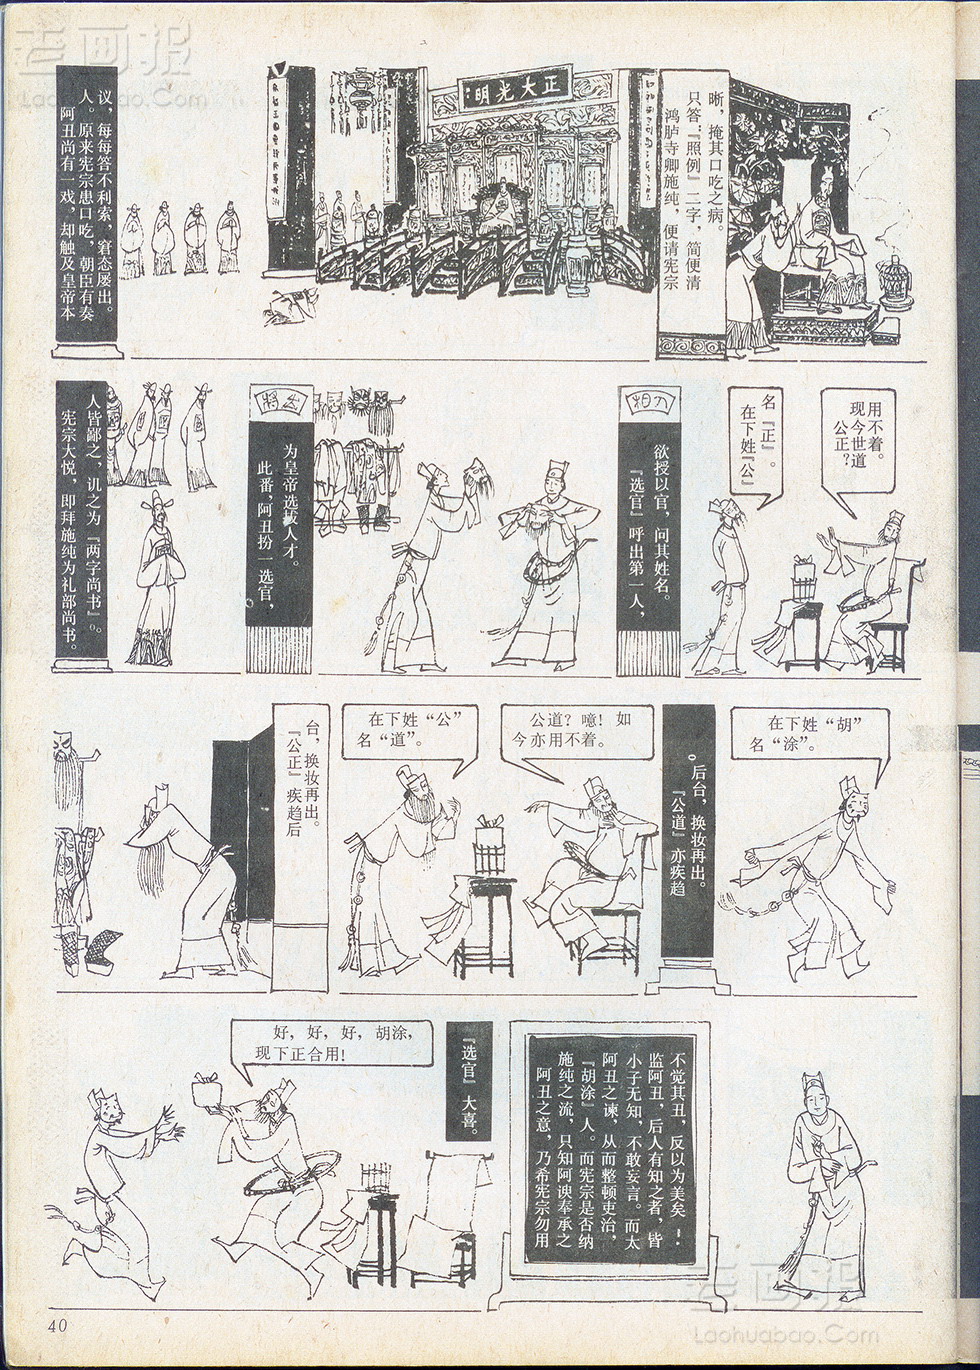 老画报
Laohuabao.Com
阿丑尚有一戏，却触及皇帝本
人。原来宪宗患口吃，朝臣有奏
议，每每答不利索，窘态屡出。
正大光明
鸿胪寺卿施纯，便请宪宗
只答：『照例』二字，简便清
晰，掩其口吃之病。
宪宗大悦，即拜施纯为礼部尚书。
人皆鄙之，讥之为『两字尚书』。
出将
此番，阿丑扮一选官，
为皇帝选拔人才。
入相
『选官』呼出第一人，
欲授以官，问其姓名。
在下姓『公』
名『正』。
公正？
现今世道
用不着。
『公正』疾趋后
台，换妆再出。
在下姓“公”
名“道”。
公道？噫！如
今亦用不着。
『公道』亦疾趋
后台，换妆再出。
在下姓“胡”
名“涂”。
好，好，好，胡涂，
现下正合用！
『选官』大喜。
阿丑之意，乃希宪宗勿用
施纯之流，只知阿谀奉承之
『胡涂』人。而宪宗是否纳
阿丑之谏，从而整顿吏治，
小子无知，不敢妄言。而太
监阿丑，后人有知之者，皆
不觉其丑，反以为美矣！
40
老画报
Laohuabao.Com